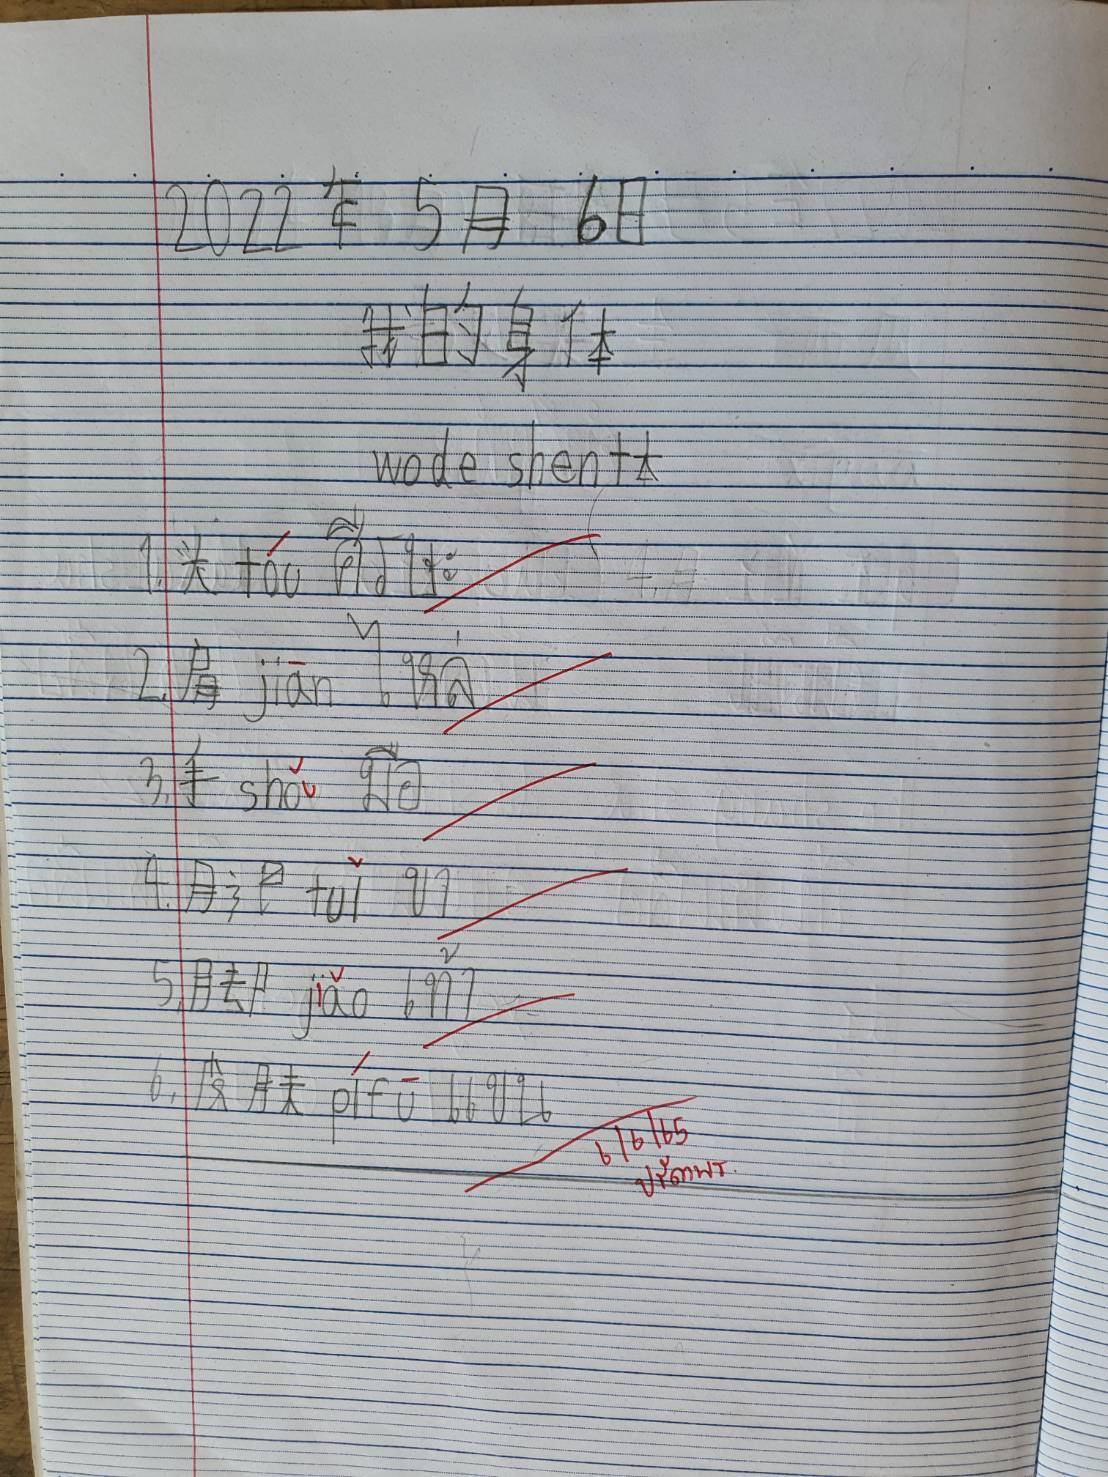 2022年 5月 6日
我的身体
wode shentt
1. 头 tóu ศีรษะ
2. 肩 jiān ไหล่
3. 手 shǒu มือ
4. 腿 tuǐ ขา
5. 脚 jiǎo เท้า
6. 皮肤 pífū แขน
6/6/65